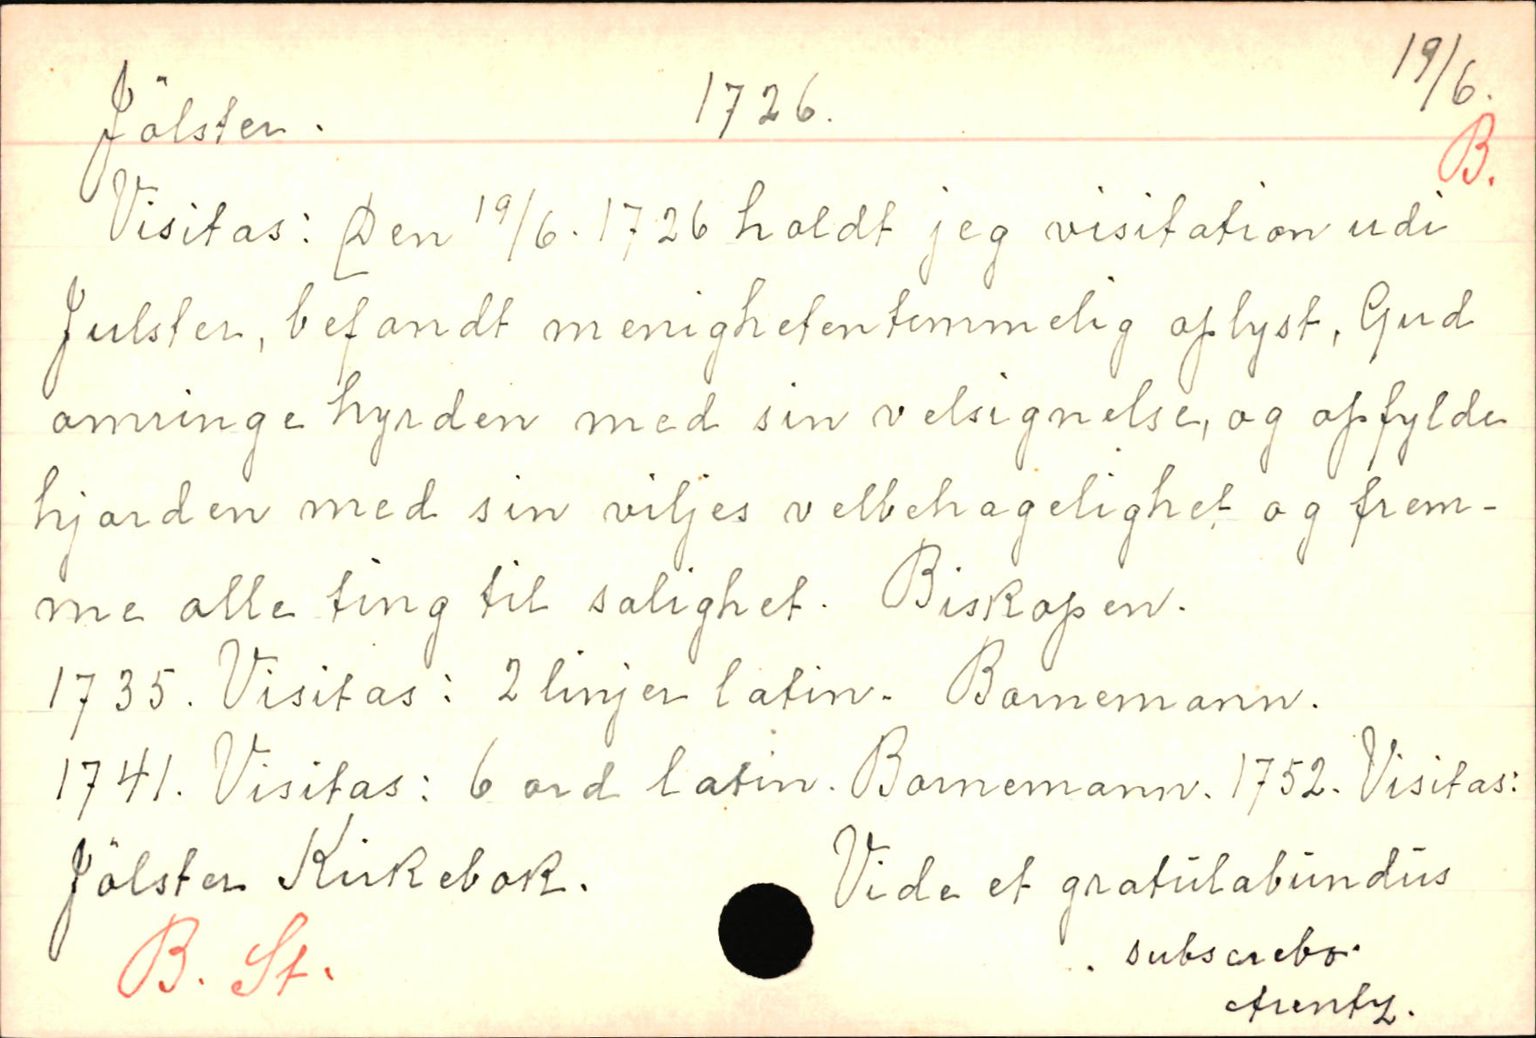 Jölster. 1726. 19/6.
B.
Visitas: Den 19/6. 1726 holdt jeg visitation udi
Julster, befandt menigheten temmelig oplyst, Gud
omringe hyrden med sin velsignelse, og opfylde
hjorden med sin viljes velbehagelighet og frem-
me alle ting til salighet. Biskopen.
1735. Visitas: 2 linjer latin. Bornemann.
1741. Visitas: 6 ord latin. Bornemann. 1752. Visitas:
Jölster Kirkebok. Vide et gratulabundus
B. St. subscrebo.
Arentz.